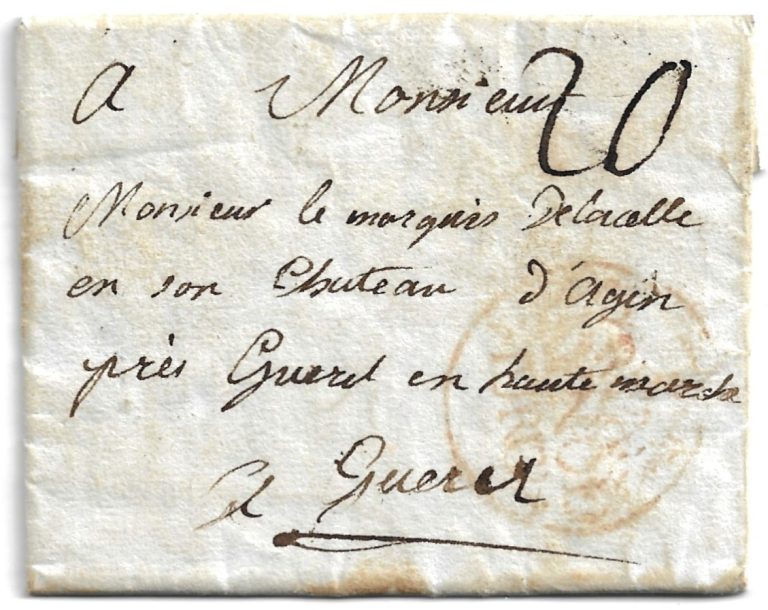 A Monsieur 20
Monsieur le marquis Delacelle
en son Chateau d'Agin
près Gueret en haute marche
A Gueret